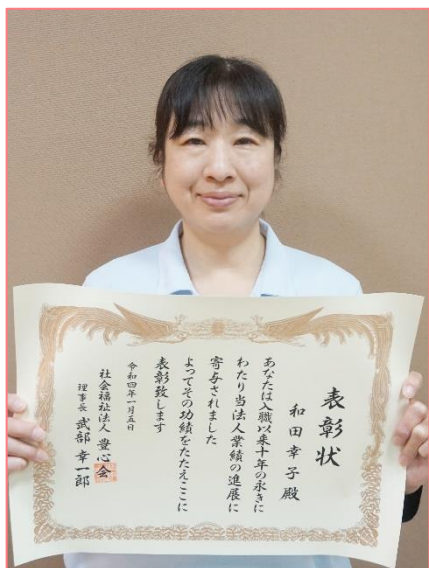 表彰状
和田幸子殿
あなたは入職以来十年の永きに
わたり当法人業績の進展に
寄与されました
よってその功績をたたえここに
表彰致します
令和四年一月五日
社会福祉法人 豊心会
理事長 武部幸一郎